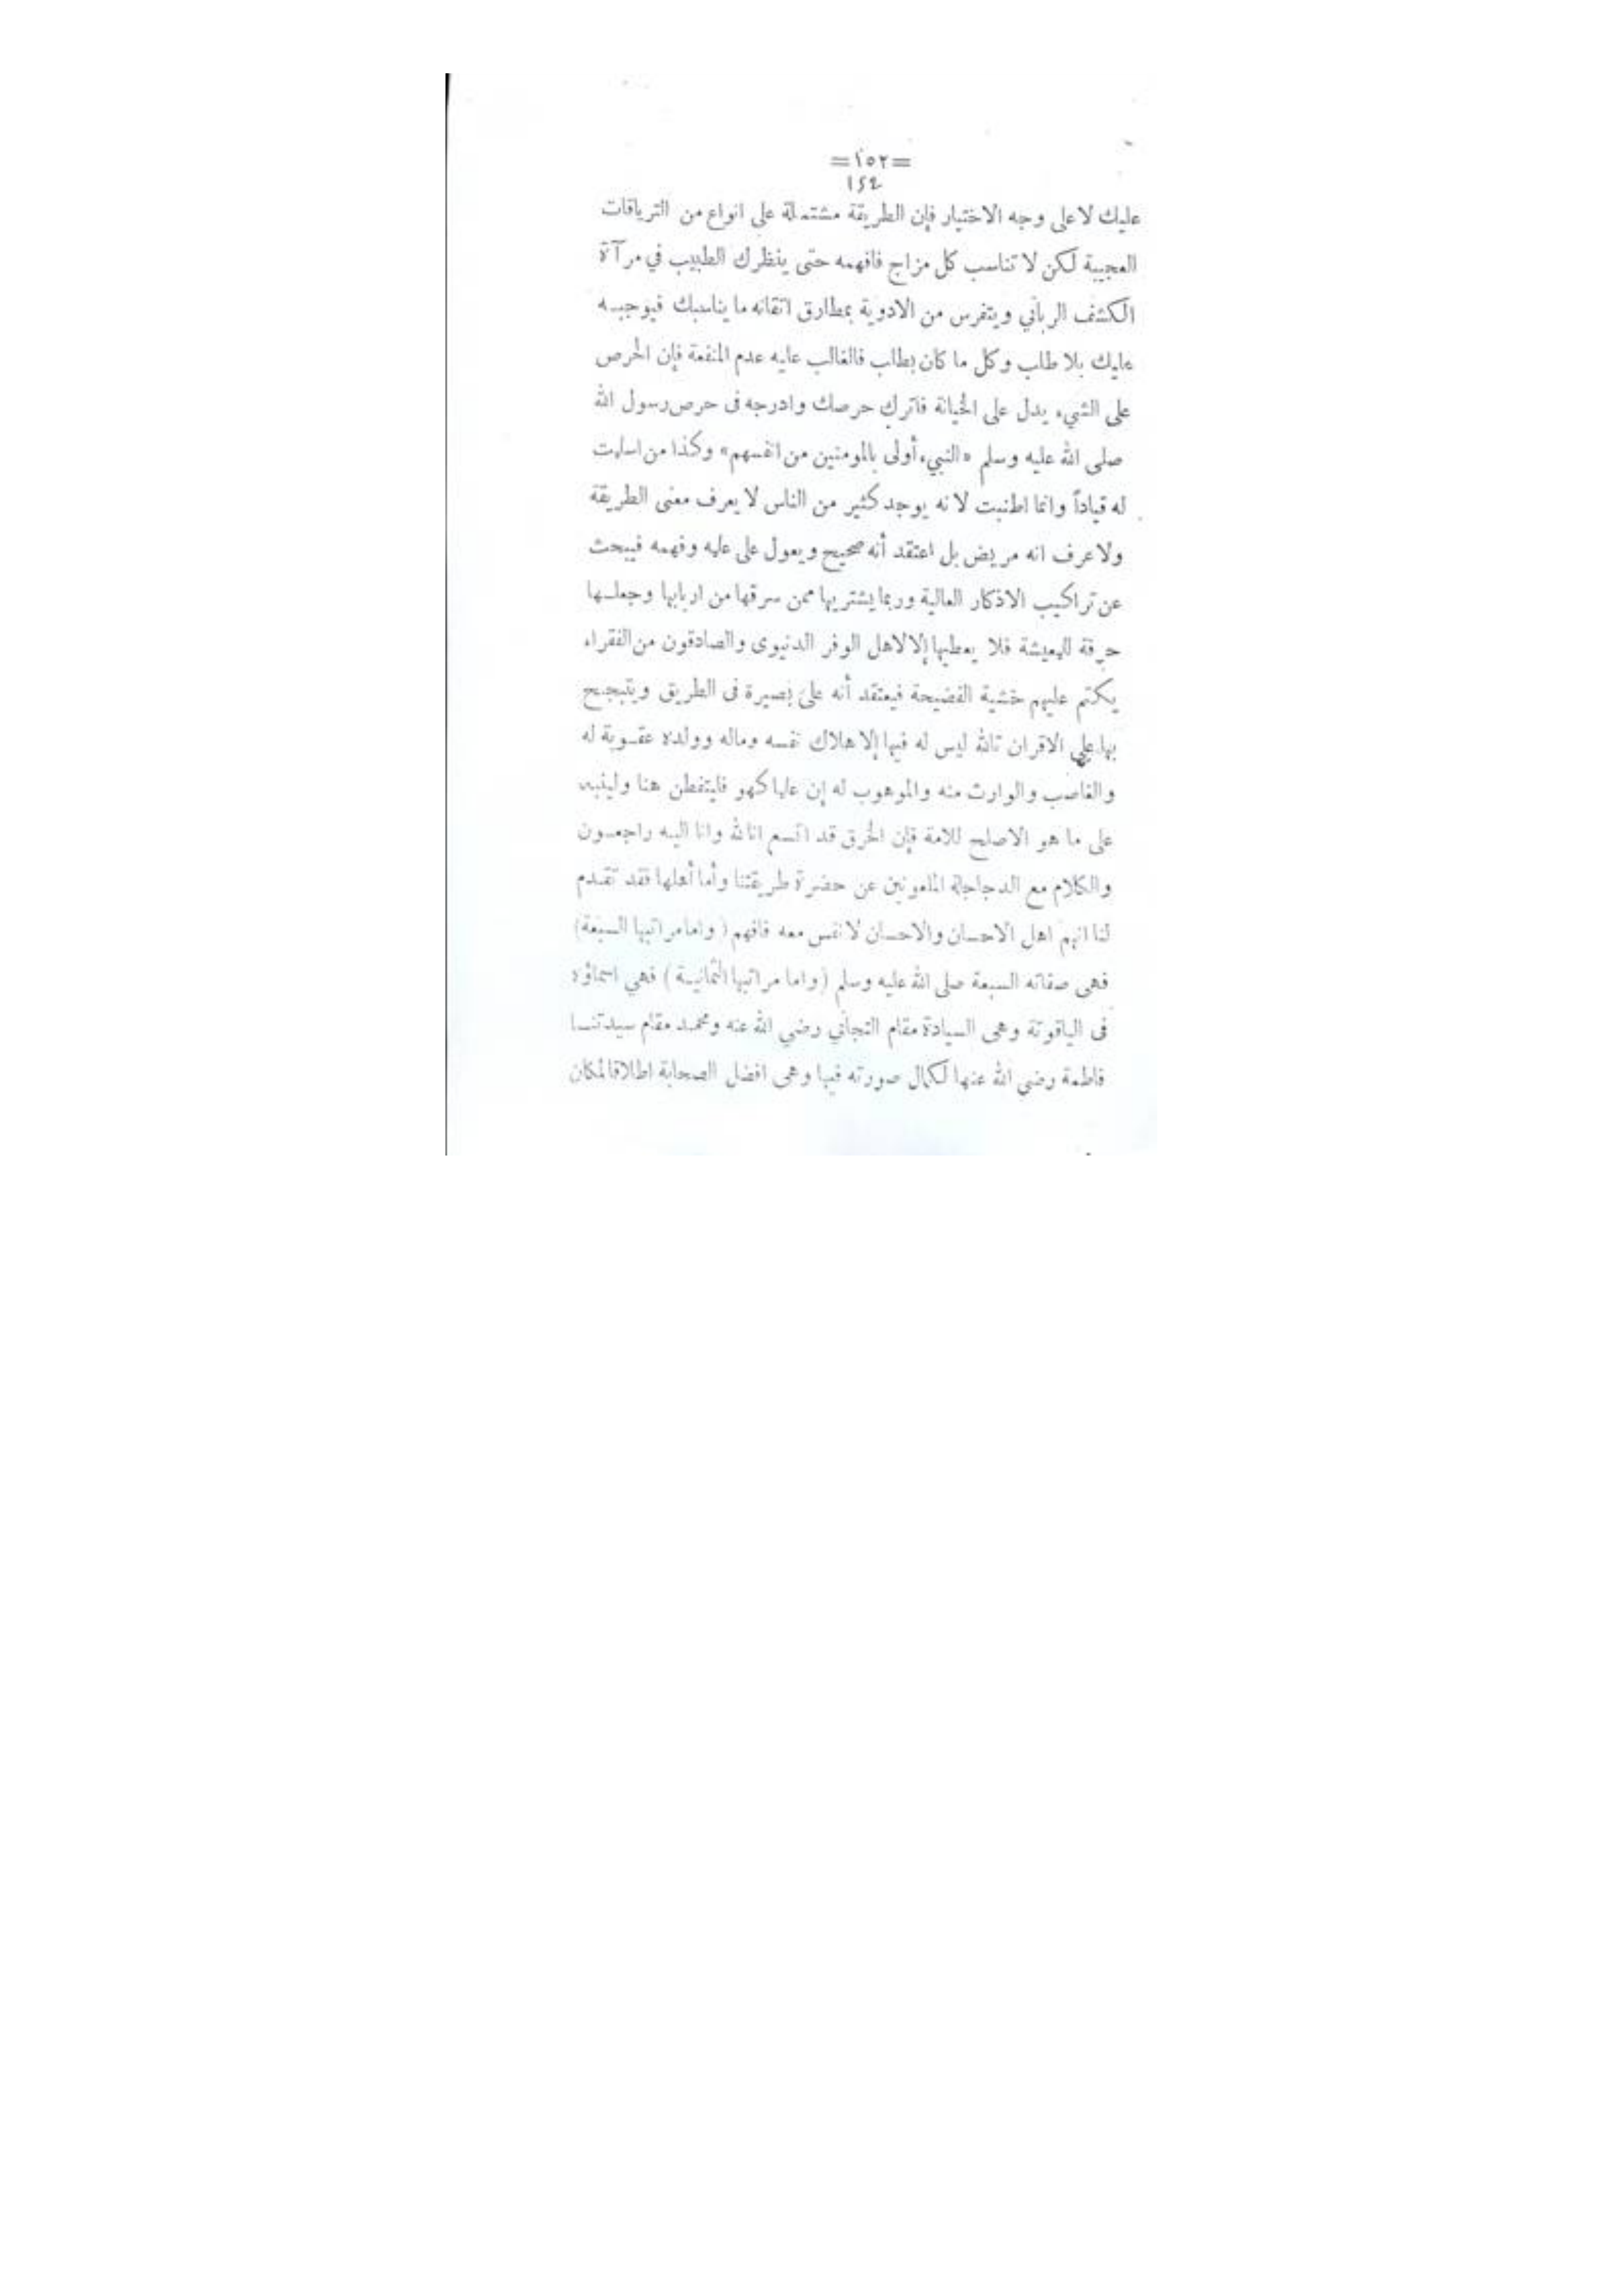 =١٥٢=
152
عليك لا على وجه الاختيار فإن الطريقة مشتملة على انواع من الترياقات
العجيبة لكن لا تناسب كل مزاج فافهمه حتى ينظرك الطبيب في مرآة
الكشف الرباني ويتفرس من الادوية بمطارق اتقانه ما يناسبك فيوجبه
عليك بلا طلب وكل ما كان بطلب فالغالب عليه عدم المنفعة فإن الحرص
على الشيء يدل على الخيانة فاترك حرصك وادرجه فى حرص رسول الله
صلى الله عليه وسلم «النبيء أولى بالمومنين من انفسهم» وكذا من اسلمت
له قياداً وانما اطنبت لانه يوجد كثير من الناس لا يعرف معنى الطريقة
ولا عرف انه مريض بل اعتقد أنه صحيح ويعول على علمه وفهمه فيبحث
عن تراكيب الاذكار العالية وربما يشتريها ممن سرقها من اربابها وجعلها
حرفة للمعيشة فلا يعطيها إلا لاهل الوفر الدنيوى والصادقون من الفقراء
يكتم عليهم خشية الفضيحة فيعتقد أنه على بصيرة فى الطريق ويتبجح
بها على الاقران تالله ليس له فيها إلا هلاك نفسه وماله وولده عقوبة له
والغاصب والوارث منه والموهوب له إن علما كهو فليتفطن هنا ولينبه
على ما هو الاصلح للامة فإن الخرق قد اتسع انا لله وانا اليه راجعون
والكلام مع الدجاجلة الملعونين عن حضرة طريقتنا وأما أهلها فقد تقدم
لنا انهم اهل الاحسان والاحسان لا نفس معه فافهم (واما مراتبها السبعة)
فهى صفاته السبعة صلى الله عليه وسلم (واما مراتبها الثمانية) فهي اسماؤه
فى الياقوتة وهى السيادة مقام التجاني رضي الله عنه ومحمد مقام سيدتنا
فاطمة رضي الله عنها لكمال صورته فيها وهى افضل الصحابة اطلاقا لمكان